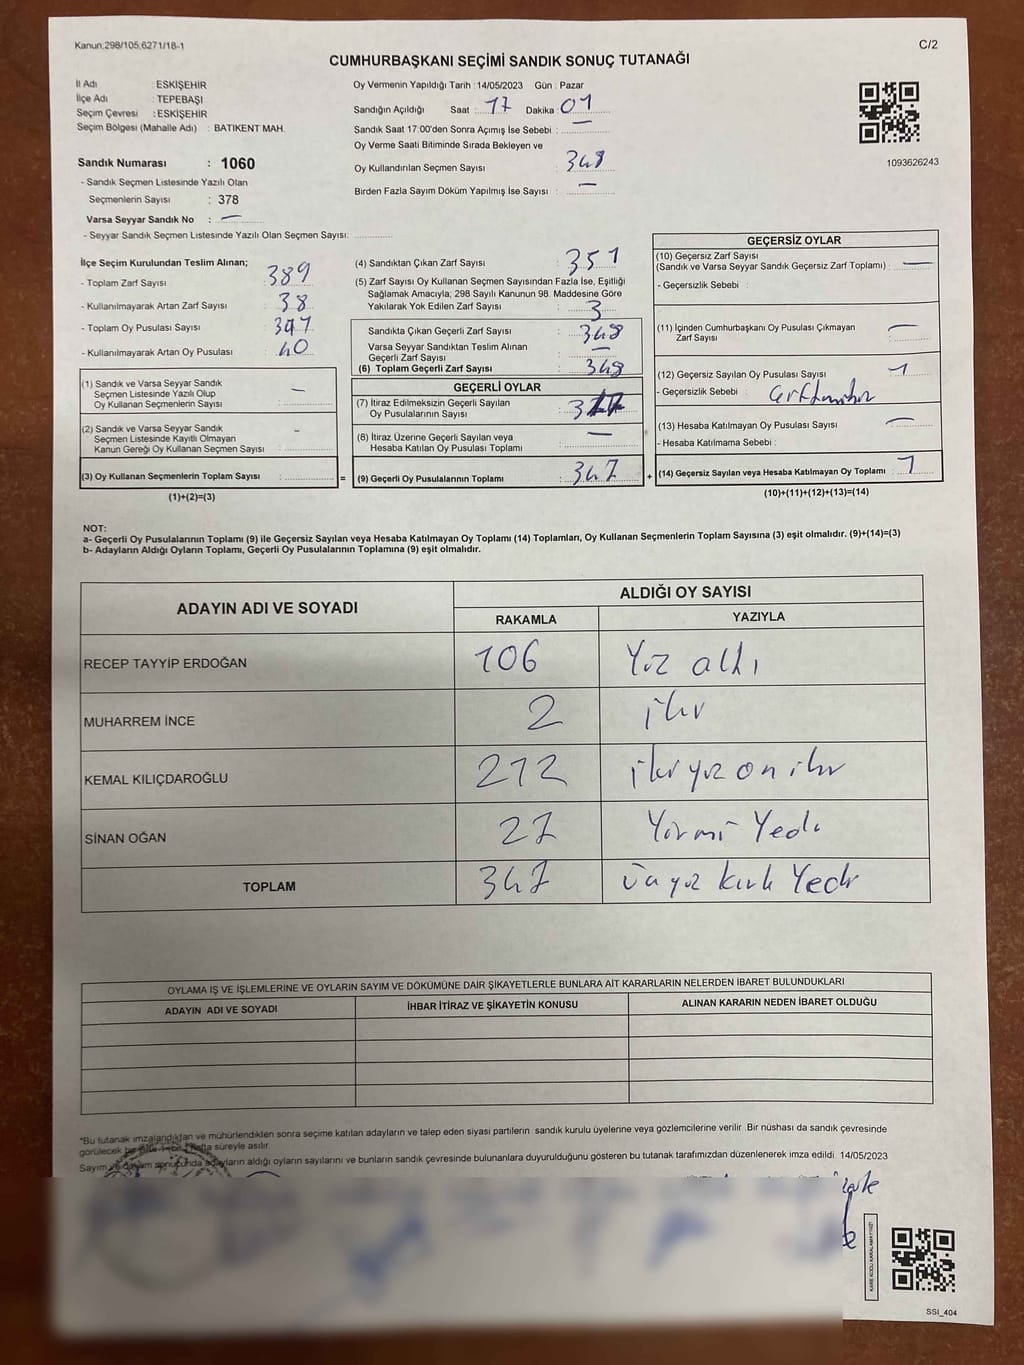 Kanun:298/105,6271/18-1
C/2
CUMHURBAŞKANI SEÇİMİ SANDIK SONUÇ TUTANAĞI
İl Adı : ESKİŞEHİR
İlçe Adı : TEPEBAŞI
Seçim Çevresi : ESKİŞEHİR
Seçim Bölgesi (Mahalle Adı) : BATIKENT MAH.
Sandık Numarası : 1060
- Sandık Seçmen Listesinde Yazılı Olan
Seçmenlerin Sayısı : 378
Varsa Seyyar Sandık No : —
- Seyyar Sandık Seçmen Listesinde Yazılı Olan Seçmen Sayısı:
Oy Vermenin Yapıldığı Tarih : 14/05/2023 Gün : Pazar
Sandığın Açıldığı Saat : 17 Dakika : 01
Sandık Saat 17:00'den Sonra Açımış İse Sebebi : —
Oy Verme Saati Bitiminde Sırada Bekleyen ve
Oy Kullandırılan Seçmen Sayısı : 348
Birden Fazla Sayım Döküm Yapılmış İse Sayısı : —
1093626243
İlçe Seçim Kurulundan Teslim Alınan;
- Toplam Zarf Sayısı : 389
- Kullanılmayarak Artan Zarf Sayısı : 38
- Toplam Oy Pusulası Sayısı :
- Kullanılmayarak Artan Oy Pusulası : 40
(1) Sandık ve Varsa Seyyar Sandık
Seçmen Listesinde Yazılı Olup
Oy Kullanan Seçmenlerin Sayısı : —
(2) Sandık ve Varsa Seyyar Sandık
Seçmen Listesinde Kayıtlı Olmayan
Kanun Gereği Oy Kullanan Seçmen Sayısı : –
(3) Oy Kullanan Seçmenlerin Toplam Sayısı :
(1)+(2)=(3)
(4) Sandıktan Çıkan Zarf Sayısı : 351
(5) Zarf Sayısı Oy Kullanan Seçmen Sayısından Fazla İse, Eşitliği
Sağlamak Amacıyla; 298 Sayılı Kanunun 98. Maddesine Göre
Yakılarak Yok Edilen Zarf Sayısı : 3
Sandıkta Çıkan Geçerli Zarf Sayısı : 348
Varsa Seyyar Sandıktan Teslim Alınan
Geçerli Zarf Sayısı : —
(6) Toplam Geçerli Zarf Sayısı : 348
GEÇERLİ OYLAR
(7) İtiraz Edilmeksizin Geçerli Sayılan
Oy Pusulalarının Sayısı :
(8) İtiraz Üzerine Geçerli Sayılan veya
Hesaba Katılan Oy Pusulası Toplamı : —
= (9) Geçerli Oy Pusulalarının Toplamı : 347 +
GEÇERSİZ OYLAR
(10) Geçersiz Zarf Sayısı
(Sandık ve Varsa Seyyar Sandık Geçersiz Zarf Toplamı) : —
- Geçersizlik Sebebi :
(11) İçinden Cumhurbaşkanı Oy Pusulası Çıkmayan
Zarf Sayısı : —
(12) Geçersiz Sayılan Oy Pusulası Sayısı : 1
- Geçersizlik Sebebi :
(13) Hesaba Katılmayan Oy Pusulası Sayısı : —
- Hesaba Katılmama Sebebi :
(14) Geçersiz Sayılan veya Hesaba Katılmayan Oy Toplamı : 1
(10)+(11)+(12)+(13)=(14)
NOT:
a- Geçerli Oy Pusulalarının Toplamı (9) ile Geçersiz Sayılan veya Hesaba Katılmayan Oy Toplamı (14) Toplamları, Oy Kullanan Seçmenlerin Toplam Sayısına (3) eşit olmalıdır. (9)+(14)=(3)
b- Adayların Aldığı Oyların Toplamı, Geçerli Oy Pusulalarının Toplamına (9) eşit olmalıdır.
ADAYIN ADI VE SOYADI ALDIĞI OY SAYISI
RAKAMLA YAZIYLA
RECEP TAYYİP ERDOĞAN 106 Yüz altı
MUHARREM İNCE 2 iki
KEMAL KILIÇDAROĞLU 212 iki yüz on iki
SİNAN OĞAN 27 Yirmi Yedi
TOPLAM 347 üç yüz kırk Yedi
OYLAMA İŞ VE İŞLEMLERİNE VE OYLARIN SAYIM VE DÖKÜMÜNE DAİR ŞİKAYETLERLE BUNLARA AİT KARARLARIN NELERDEN İBARET BULUNDUKLARI
ADAYIN ADI VE SOYADI İHBAR İTİRAZ VE ŞİKAYETİN KONUSU ALINAN KARARIN NEDEN İBARET OLDUĞU
"Bu tutanak imzalandıktan ve mühürlendikten sonra seçime katılan adayların ve talep eden siyasi partilerin sandık kurulu üyelerine veya gözlemcilerine verilir. Bir nüshası da sandık çevresinde
görülecek bir yere 1 (bir) hafta süreyle asılır.
Sayım ve döküm sonucunda adayların aldığı oyların sayılarını ve bunların sandık çevresinde bulunanlara duyurulduğunu gösteren bu tutanak tarafımızdan düzenlenerek imza edildi. 14/05/2023
KARE KODU KARALAMAYINIZ!
SSİ_404